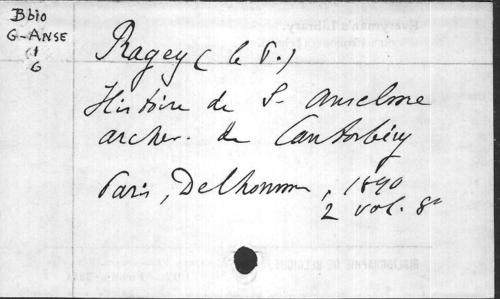 Bbio
G-ANSE
1
6
Ragey (le P.)
Histoire de S- Anselme
archev. de Cantorbéry
Paris, Delhomme, 1890
2 vol. 8°